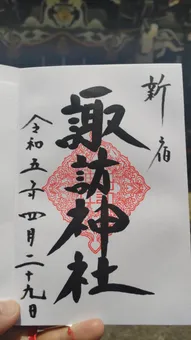 新宿
諏訪神社
令和五年四月二十九日